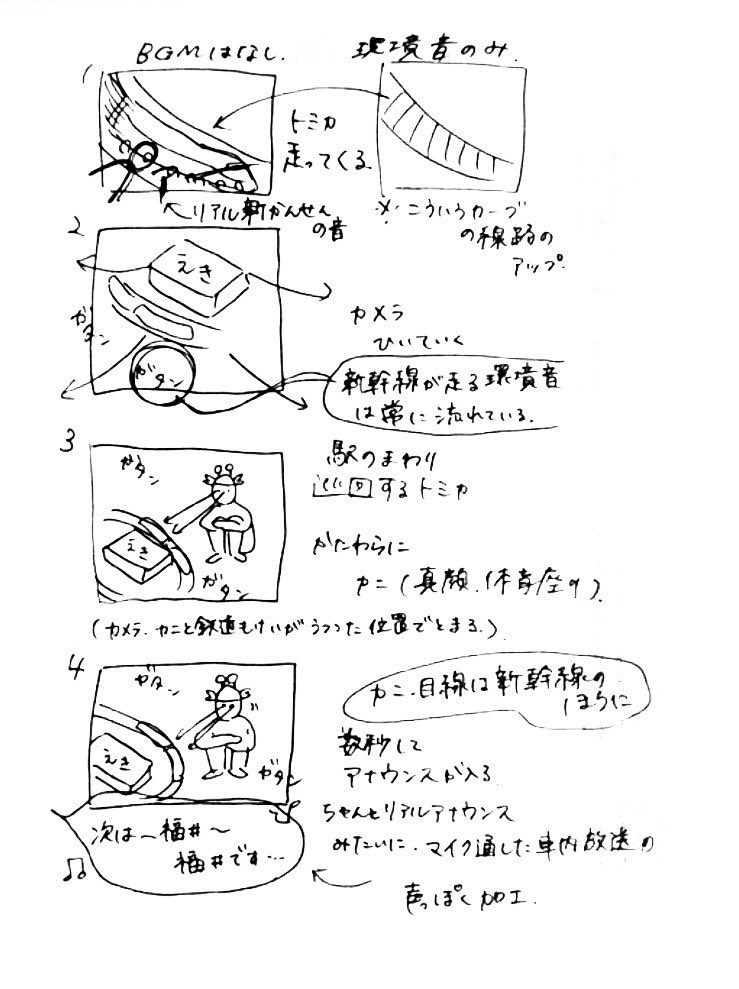 BGMはなし. 環境音のみ.
1
トミカ
走ってくる
リアル新かんせん
の音
※こういうカーブ
の線路の
アップ.
2
えき
ガタン
ガタン
カメラ
ひいていく
新幹線が走る環境音
は常に流れている.
3
ガタン
えき
ガタン
駅のまわり
巡回するトミカ
かたわらに
カニ(真顔、体育座り)
(カメラ、カニと鉄道もけいがうつった位置でとまる.)
4
ガタン
えき
ガタン
カニ、目線は新幹線の
ほうに
数秒して
アナウンスが入る
次は〜福井〜
福井です…
ちゃんとリアルアナウンス
みたいに、マイク通した車内放送の
声っぽく加工.